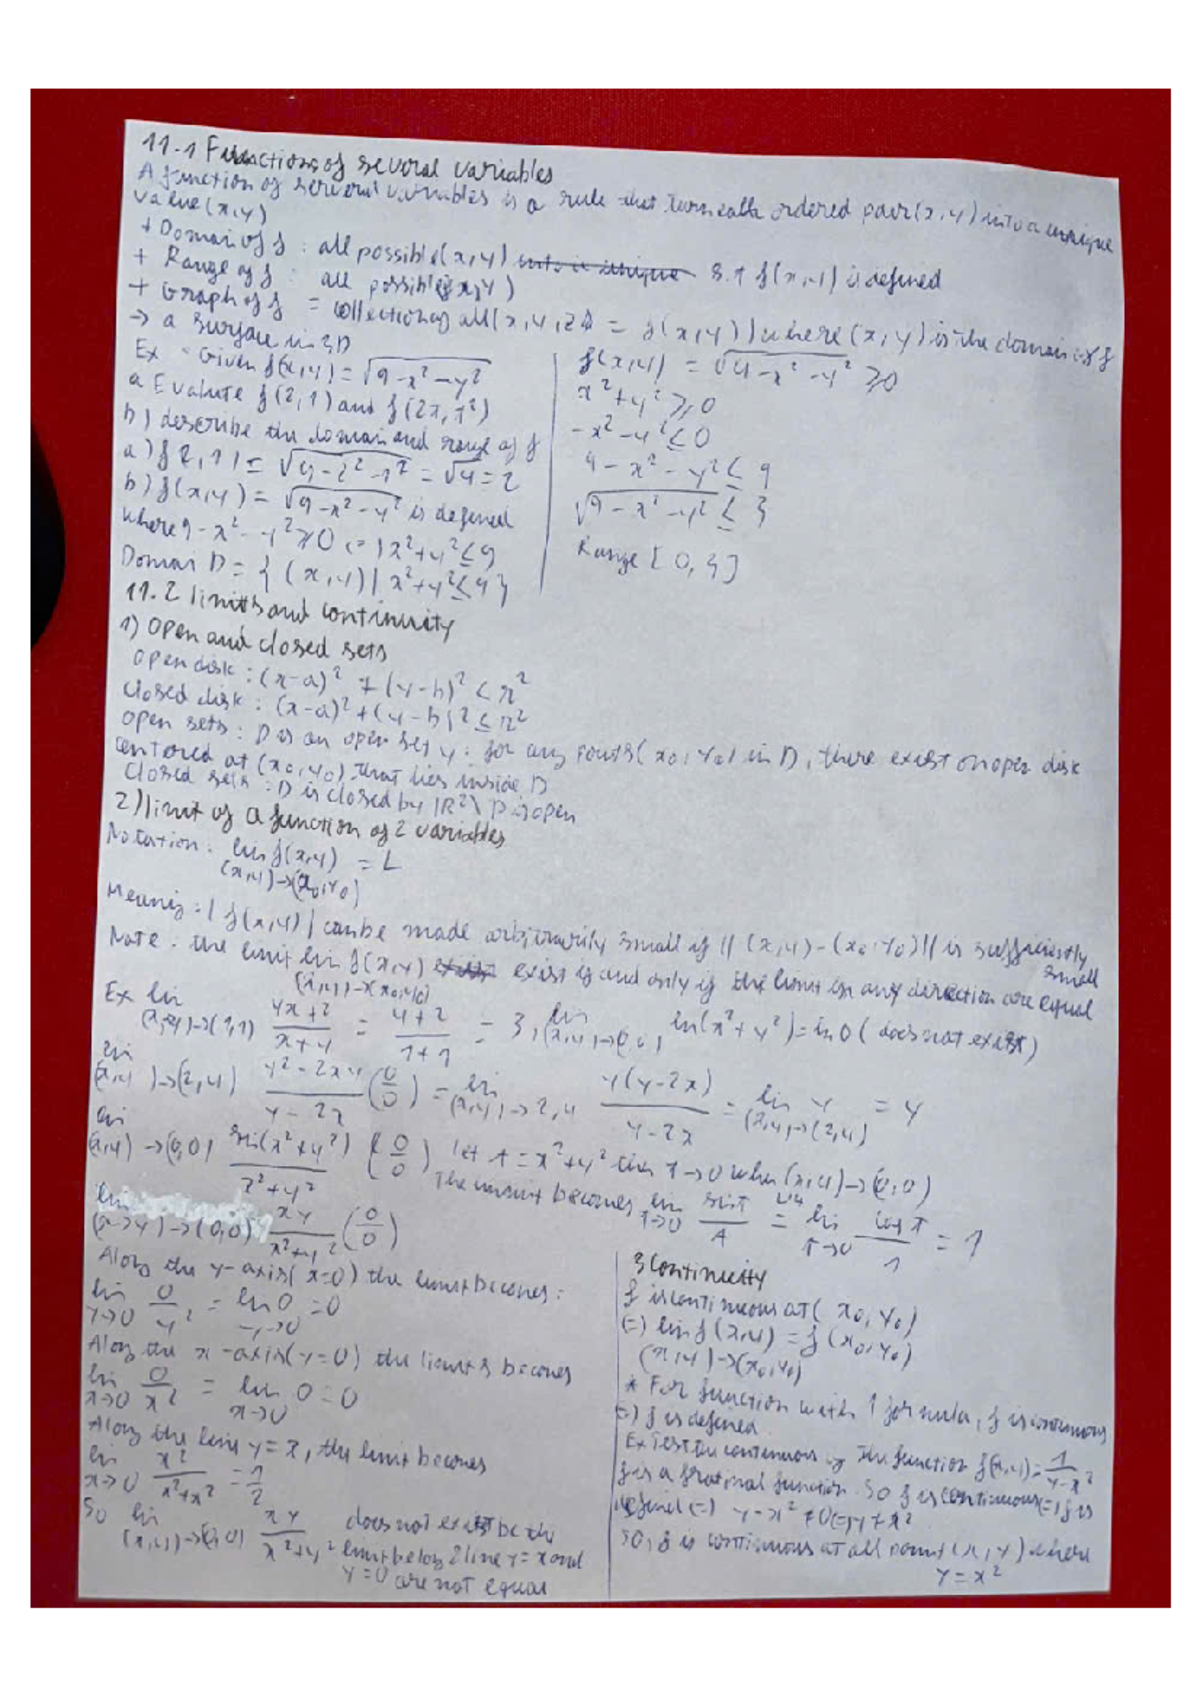 11.1 Functions of several variables
A function of several variables is a rule that turn each ordered pair (x,y) into a unique
value (x,y)
+ Domain of f : all possible (x,y) into a unique s.t f(x,y) is defined
+ Range of f : all possible f(x,y)
+ Graph of f = collection of all (x,y,z) = f(x,y) | where (x,y) is the domain of f
→ a surface in 3D
Ex Given f(x,y) = √9-x²-y²
a Evalute f(2,1) and f(2x,x²)
b) describe the domain and range of f
a) f(2,1) = √9-2²-1² = √4 = 2
b) f(x,y) = √9-x²-y² is defined
where 9-x²-y² ≥ 0 (=) x²+y² ≤ 9
Domain D = { (x,y) | x²+y² ≤ 9 }
f(x,y) = √9-x²-y² ≥ 0
x²+y² ≥ 0
-x²-y² ≤ 0
9-x²-y² ≤ 9
√9-x²-y² ≤ 3
Range [0,3]
11.2 limits and continuity
1) open and closed sets
open disk : (x-a)² + (y-b)² < r²
closed disk : (x-a)² + (y-b)² ≤ r²
open sets : D is an open set y : for any points (x0,y0) in D, there exist on open disk
centered at (x0,y0) that lies inside D
closed sets : D is closed by |R²\ D is open
2) limit of a function of 2 variables
Notation : lim f(x,y) = L
(x,y)→(x0,y0)
Meaning : | f(x,y) | can be made arbitrarily small if || (x,y)-(x0,y0) || is sufficiently
small
Note : the limit lim f(x,y) exist exist if and only if the limit in any direction are equal
(x,y)→(x0,y0)
Ex lim (x,y)→(1,1) 4x+2 / x+y = 4+2 / 1+1 = 3, lim (x,y)→(0,0) ln(x²+y²) = ln 0 (does not exist)
lim (x,y)→(2,4) y²-2xy / y-2x (0/0) = lim (x,y)→2,4 y(y-2x) / y-2x = lim (x,y)→(2,4) y = 4
lim (x,y)→(0,0) sin(x²+y²) / x²+y² (0/0) let t = x²+y² then t→0 when (x,y)→(0,0)
The limit becomes lim t→0 sin t / t = lim t→0 cos t / 1 = 1
lim (x,y)→(0,0) xy / x²+y² (0/0)
Along the y-axis (x=0) the limit becomes :
lim y→0 0 / y² = lim 0 = 0
y→0
Along the x-axis (y=0) the limit becomes
lim x→0 0 / x² = lim x→0 0 = 0
Along the line y = x, the limit becomes
lim x→0 x² / x²+x² = 1/2
So lim (x,y)→(0,0) xy / x²+y² does not exist be the
limit below 2 line y = x and
y = 0 are not equal
3 Continuity
f is continuous at (x0,y0)
(=) lim f(x,y) = f(x0,y0)
(x,y)→(x0,y0)
* For function with 1 formula, f is continuous
(=) f is defined
Ex Test the continuous of the function f(x,y) = 1 / y-x²
f is a frational function. So f is continuous (=) f is
defined (=) y-x² ≠ 0 (=) y ≠ x²
So, f is continuous at all point (x,y) where
y = x²